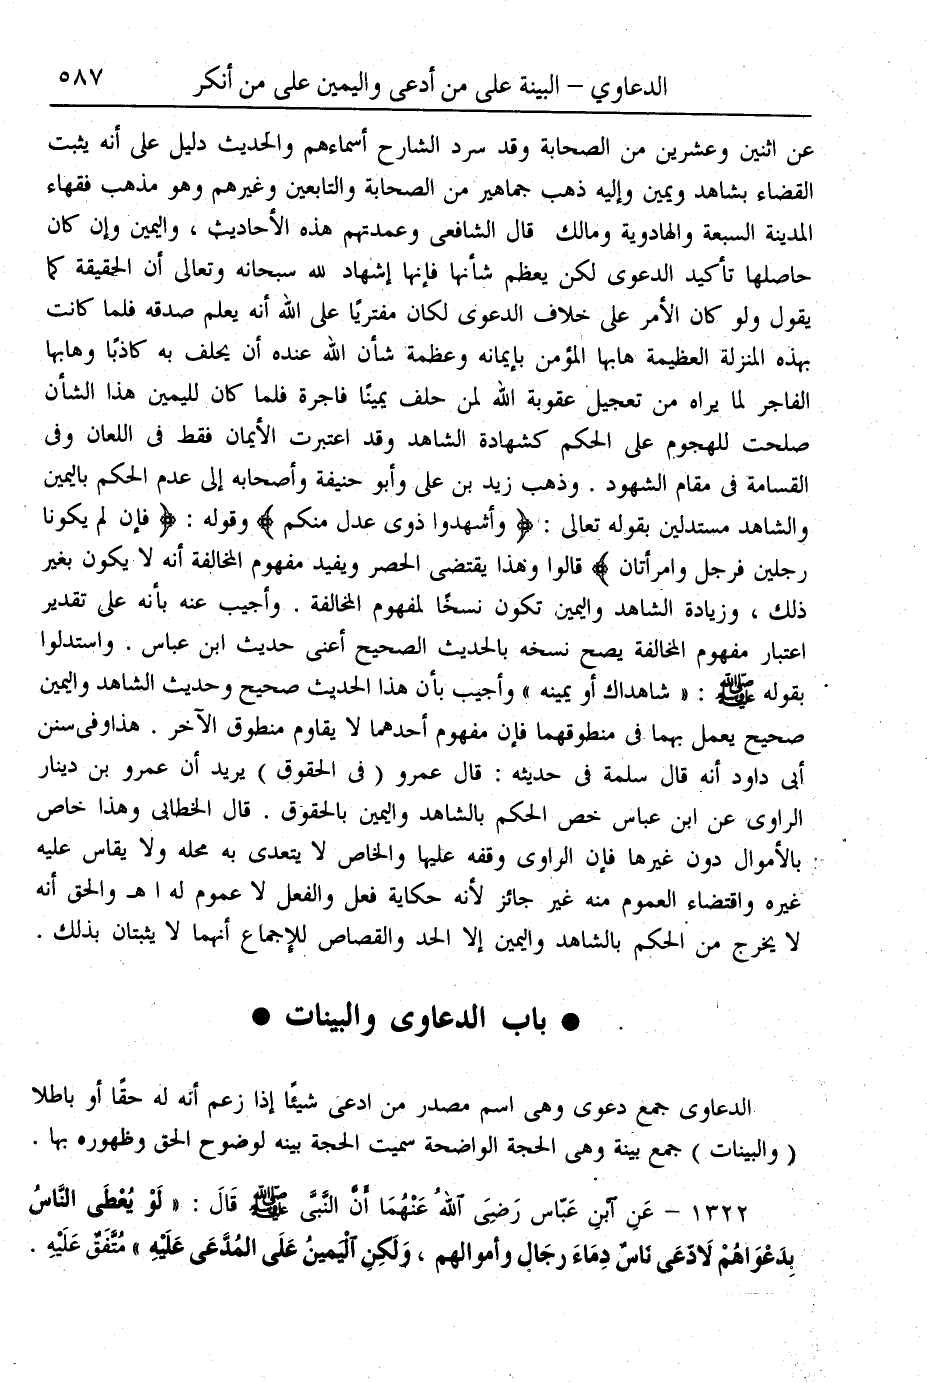 الدعاوي – البينة على من أدعى واليمين على من أنكر ٥٨٧
عن اثنين وعشرين من الصحابة وقد سرد الشارح أسماءهم والحديث دليل على أنه يثبت
القضاء بشاهد ويمين وإليه ذهب جماهير من الصحابة والتابعين وغيرهم وهو مذهب فقهاء
المدينة السبعة والهادوية ومالك قال الشافعى وعمدتهم هذه الأحاديث ، واليمين وإن كان
حاصلها تأكيد الدعوى لكن يعظم شأنها فإنها إشهاد لله سبحانه وتعالى أن الحقيقة كما
يقول ولو كان الأمر على خلاف الدعوى لكان مفتريًا على الله أنه يعلم صدقه فلما كانت
بهذه المنزلة العظيمة هابها المؤمن بإيمانه وعظمة شأن الله عنده أن يحلف به كاذبًا وهابها
الفاجر لما يراه من تعجيل عقوبة الله لمن حلف يمينًا فاجرة فلما كان لليمين هذا الشأن
صلحت للهجوم على الحكم كشهادة الشاهد وقد اعتبرت الأيمان فقط فى اللعان وفى
القسامة فى مقام الشهود . وذهب زيد بن على وأبو حنيفة وأصحابه إلى عدم الحكم باليمين
والشاهد مستدلين بقوله تعالى : ﴿ وأشهدوا ذوى عدل منكم ﴾ وقوله : ﴿ فإن لم يكونا
رجلين فرجل وامرأتان ﴾ قالوا وهذا يقتضى الحصر ويفيد مفهوم المخالفة أنه لا يكون بغير
ذلك ، وزيادة الشاهد واليمين تكون نسخًا لمفهوم المخالفة . وأجيب عنه بأنه على تقدير
اعتبار مفهوم المخالفة يصح نسخه بالحديث الصحيح أعنى حديث ابن عباس . واستدلوا
بقوله ﷺ : « شاهداك أو يمينه » وأجيب بأن هذا الحديث صحيح وحديث الشاهد واليمين
صحيح يعمل بهما فى منطوقهما فإن مفهوم أحدهما لا يقاوم منطوق الآخر . هذاوفى سنن
أبى داود أنه قال سلمة فى حديثه : قال عمرو ( فى الحقوق ) يريد أن عمرو بن دينار
الراوى عن ابن عباس خص الحكم بالشاهد واليمين بالحقوق . قال الخطابى وهذا خاص
بالأموال دون غيرها فإن الراوى وقفه عليها والخاص لا يتعدى به محله ولا يقاس عليه
غيره واقتضاء العموم منه غير جائز لأنه حكاية فعل والفعل لا عموم له ا هـ والحق أنه
لا يخرج من الحكم بالشاهد واليمين إلا الحد والقصاص للإجماع أنهما لا يثبتان بذلك .
● باب الدعاوى والبينات ●
الدعاوى جمع دعوى وهى اسم مصدر من ادعى شيئًا إذا زعم أنه له حقًا أو باطلا
( والبينات ) جمع بينة وهى الحجة الواضحة سميت الحجة بينه لوضوح الحق وظهوره بها .
١٣٢٢ – عَنِ ٱبْنِ عَبَّاس رَضِىَ ٱللهُ عَنْهُمَا أَنَّ النَّبِىَّ ﷺ قَالَ : « لَوْ يُعْطَى النَّاسُ
بِدَعْوَاهُمْ لَادّعَى نَاسٌ دِمَاءَ رِجَالٍ وأموالهم ، وَلَكِنِ ٱلْيَمينُ عَلَى المُدَّعَى عَلَيْهِ » مُتَّفَقٌ عَلَيْهِ .